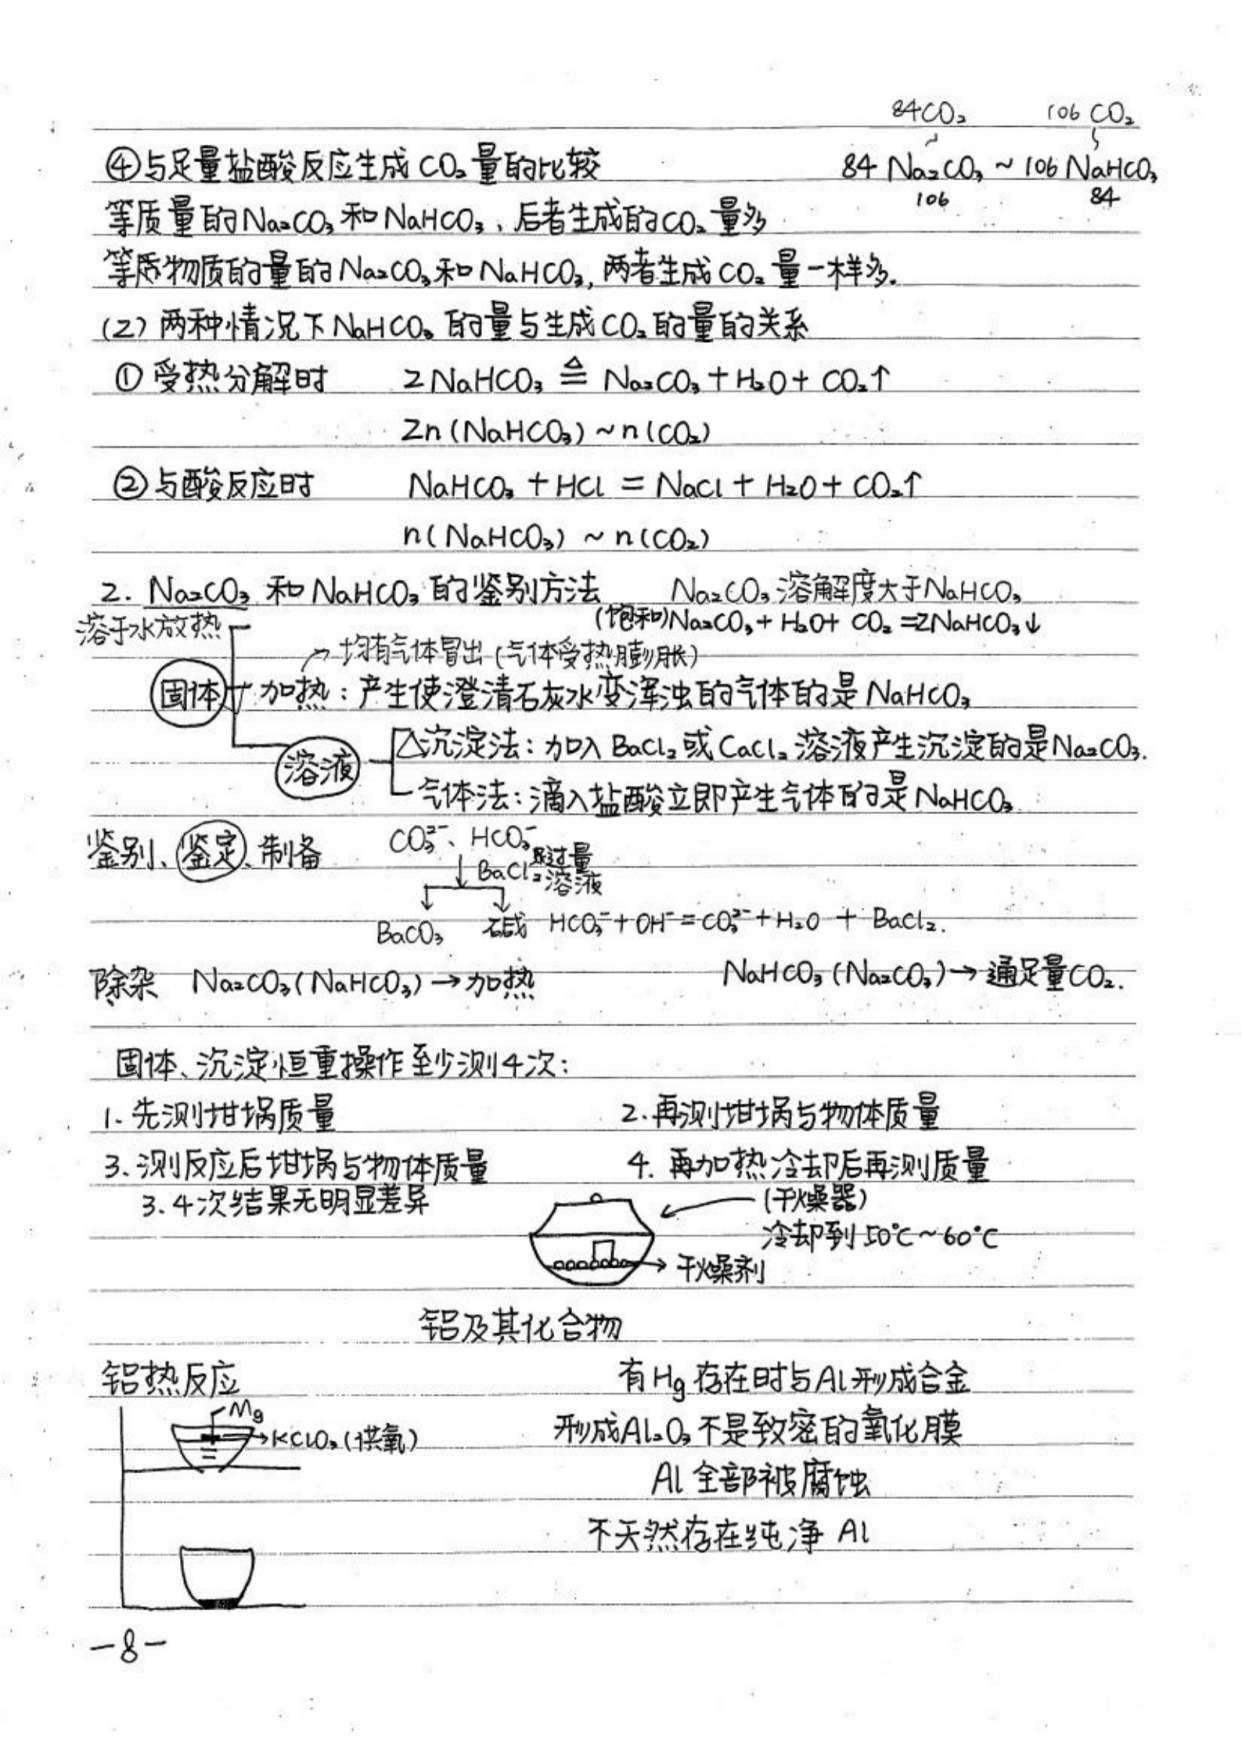 84CO₂ 106 CO₂
④与足量盐酸反应生成CO₂量的比较 84 Na₂CO₃ ~ 106 NaHCO₃
106 84
等质量的Na₂CO₃和NaHCO₃，后者生成的CO₂量多
等物质的量的Na₂CO₃和NaHCO₃,两者生成CO₂量一样多.
(2) 两种情况下NaHCO₃的量与生成CO₂的量的关系
①受热分解时 2NaHCO₃ ≜ Na₂CO₃+H₂O+CO₂↑
2n(NaHCO₃)~n(CO₂)
②与酸反应时 NaHCO₃+HCl=NaCl+H₂O+CO₂↑
n(NaHCO₃)~n(CO₂)
2. Na₂CO₃和NaHCO₃的鉴别方法 Na₂CO₃溶解度大于NaHCO₃
溶于水放热 (饱和)Na₂CO₃+H₂O+CO₂=2NaHCO₃↓
均有气体冒出(气体受热膨胀)
固体 加热:产生使澄清石灰水变浑浊的气体的是NaHCO₃
△沉淀法:加入BaCl₂或CaCl₂溶液产生沉淀的是Na₂CO₃.
溶液
气体法:滴入盐酸立即产生气体的是NaHCO₃
鉴别、鉴定、制备 CO₃²⁻、HCO₃⁻
BaCl₂过量
溶液
BaCO₃ 碱 HCO₃⁻+OH⁻=CO₃²⁻+H₂O+BaCl₂.
除杂 Na₂CO₃(NaHCO₃)→加热 NaHCO₃(Na₂CO₃)→通足量CO₂.
固体、沉淀恒重操作至少测4次:
1.先测坩埚质量 2.再测坩埚与物体质量
3.测反应后坩埚与物体质量 4.再加热冷却后再测质量
3.4次结果无明显差异 (干燥器)
冷却到50℃~60℃
干燥剂
铝及其化合物
铝热反应 有Hg存在时与Al形成合金
Mg
KClO₃(供氧) 形成Al₂O₃不是致密的氧化膜
Al全部被腐蚀
不天然存在纯净Al
-8-